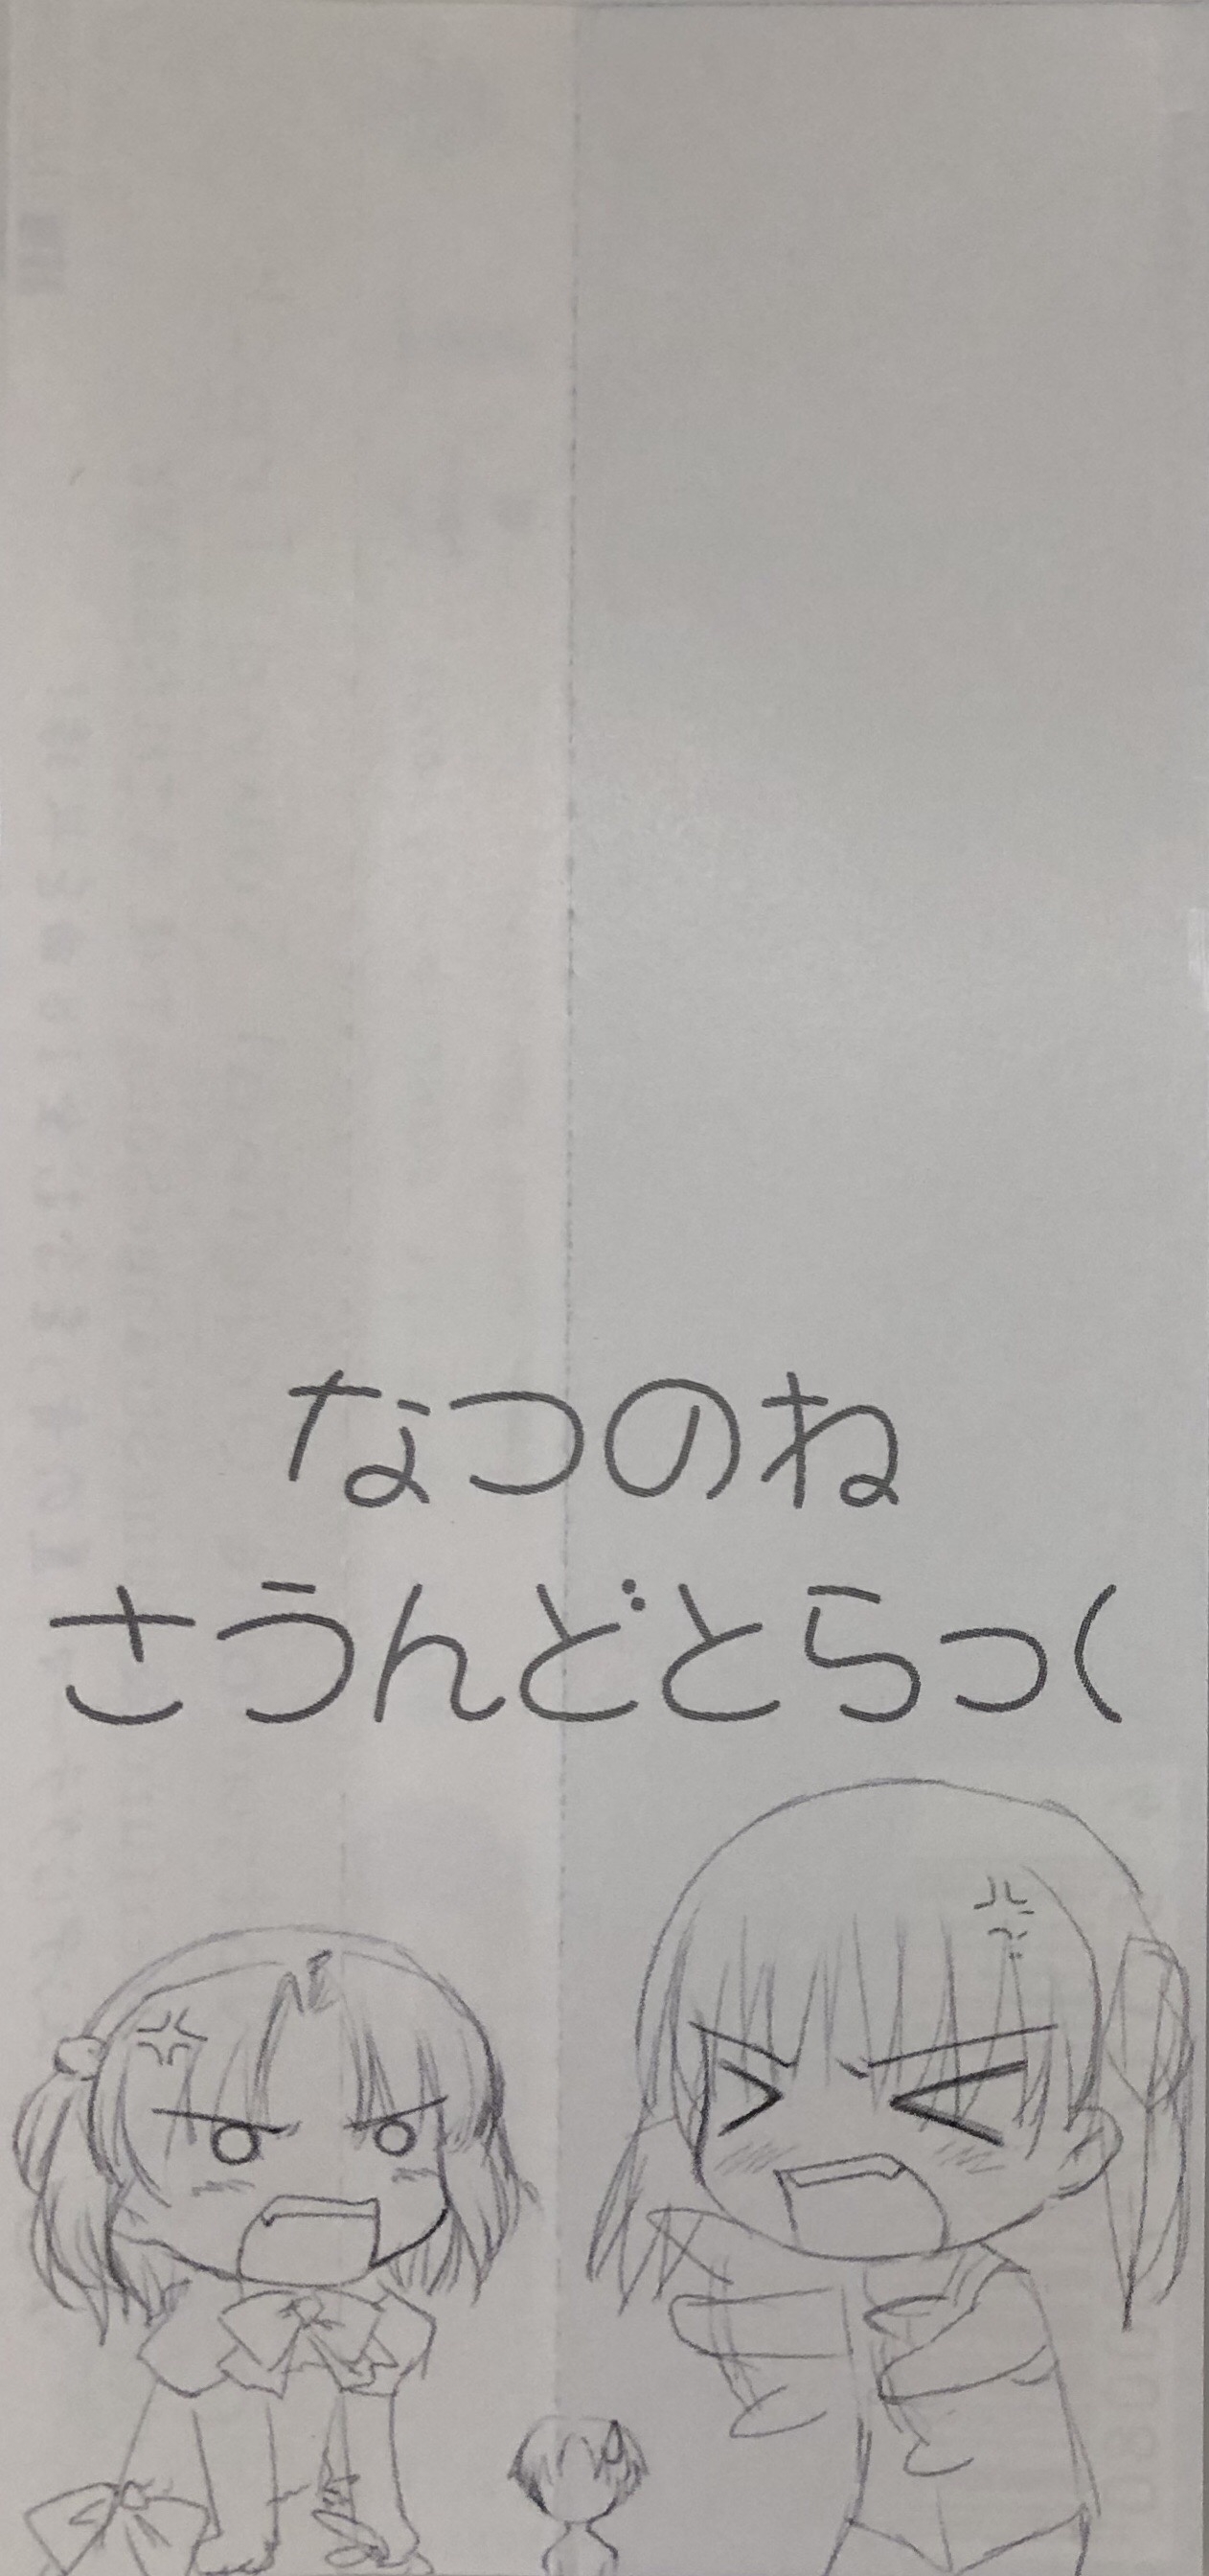 なつのね
さうんどとらっく